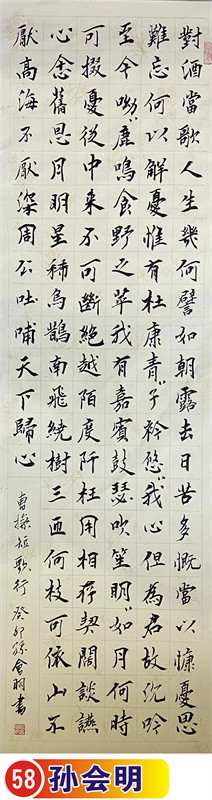 對酒當歌人生幾何譬如朝露去日苦多慨當以慷憂思
難忘何以解憂惟有杜康青〻子衿悠〻我心但為君故沈吟
至今呦〻鹿鳴食野之苹我有嘉賓鼓瑟吹笙明〻如月何時
可掇憂從中来不可斷絕越陌度阡枉用相存契闊談讌
心念舊恩月明星稀烏鵲南飛繞樹三匝何枝可依山不
厭高海不厭深周公吐哺天下歸心
曹操短歌行 癸卯孫會明書
58 孙会明